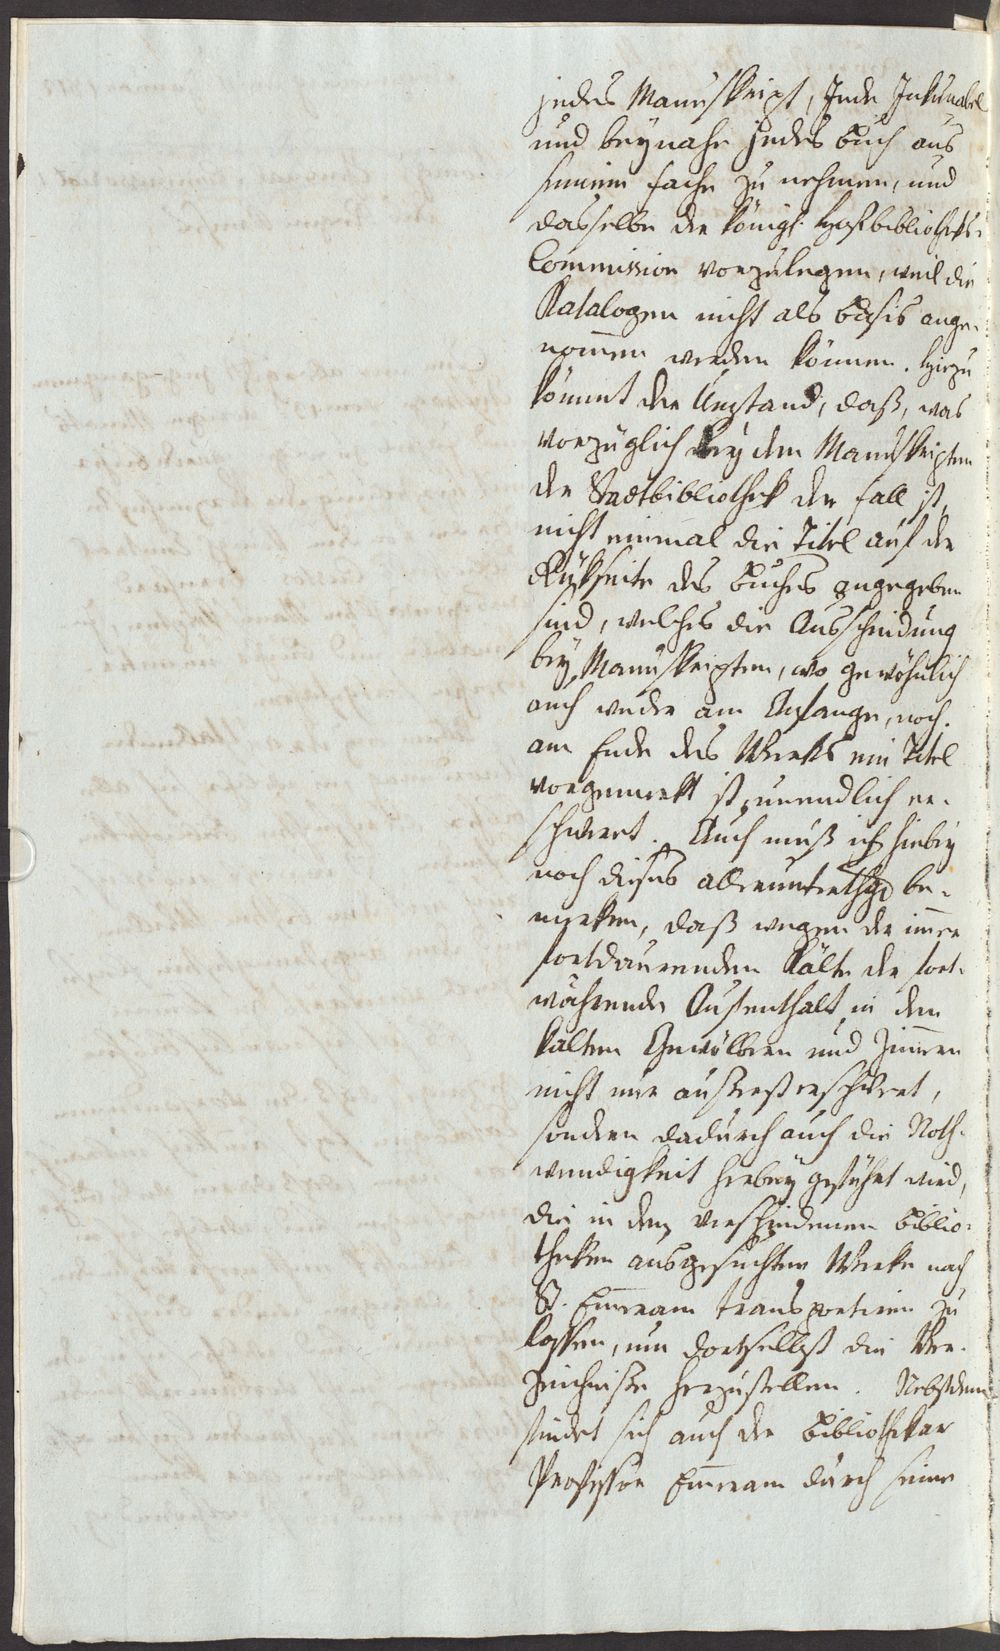 jedes Manuskript, Jede Inkunabel
und beynahe jedes Buch aus
seinem Fache zu nehmen, und
dasselbe der königl. Hofbibliotheks-
Commission vorzulegen, weil die
Katalogen nicht als Basis ange-
nom̅en werden können. Hiezu
kömmt der Umstand, daß, was
vorzüglich bey den Manuskripten
der Stadtbibliothek der Fall ist,
nicht einmal die Titel auf der
Rükseite des Buches angegeben
sind, welches die Ausscheidung
bey Manuskripten, wo gewöhnlich
auch weder am Anfange, noch
am Ende des Werks ein Titel
vorgemerkt ist, unendlich er-
schwert. Auch muß ich hiebey
noch dieses allerunterthgst be-
merken, daß wegen der im̅er
fortdaurenden Kälte der fort-
währende Aufenthalt in den
kalten Gewölbern und Zim̅ern
nicht nur äußerst erschwert,
sondern dadurch auch die Noth-
wendigkeit herbey geführt wird,
die in den verschiedenen Biblio-
theken ausgesuchten Werke nach
St. Em̅eram transportieren zu
lassen, um dortselbst die Ver-
zeichniße herzustellen. Nebstdem
findet sich auch der Bibliothekar
Professor Em̅eram durch seine